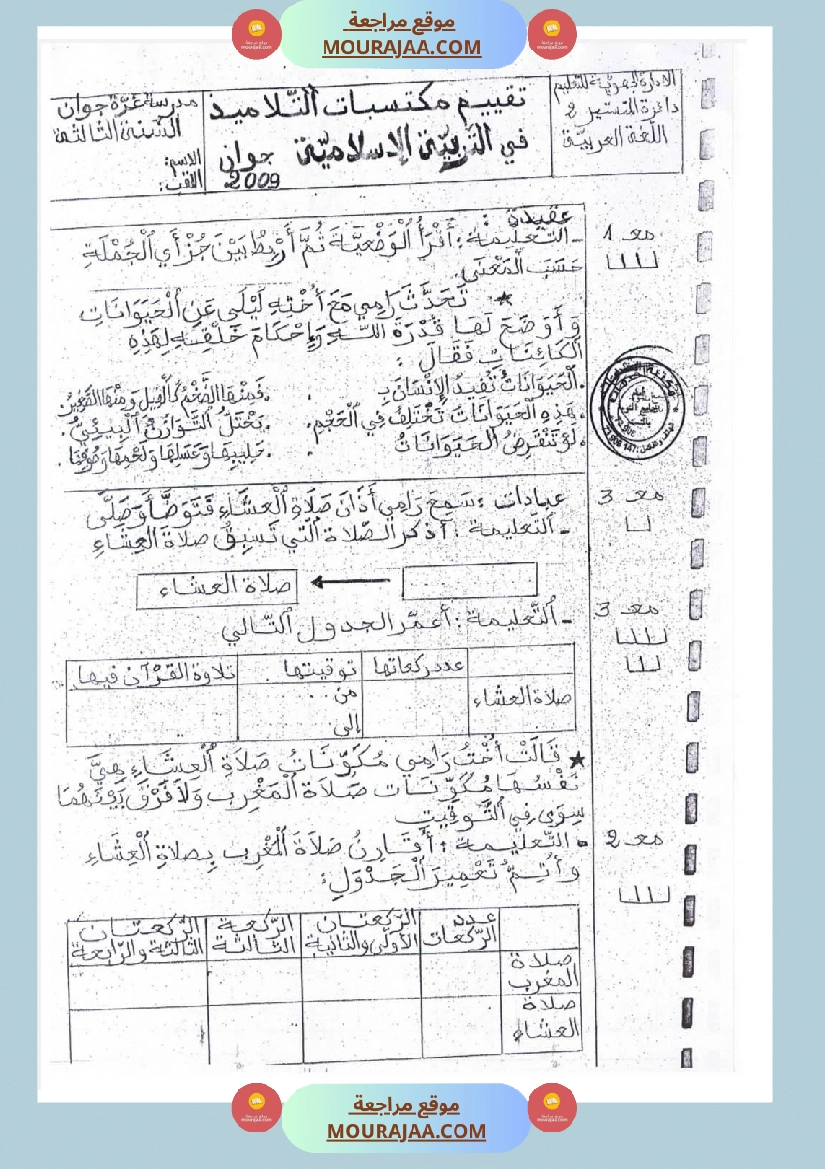 موقع مراجعة
MOURAJAA.COM
الإدارة الجهوية للتعليم
دائرة المنستير 2
اللغة العربية
تقييم مكتسبات التلاميذ
في التربية الإسلامية جوان
2009
مدرسة غرة جوان
السنة الثالثة
الاسم:
اللقب:
عقيدة :
مع 1
- التعليمة : أَقْرَأُ الْوَضْعِيَّةَ ثُمَّ أَرْبِطُ بَيْنَ جُزْأَيِ الْجُمْلَةِ
حَسَبَ الْمَعْنَى.
★ تَحَدَّثَ رَامِي مَعَ أُخْتِهِ لَيْلَى عَنِ الْحَيَوَانَاتِ
وَ أَوْضَحَ لَهَا قُدْرَةَ اللّهِ وَإِحْكَامَ خَلْقِهِ لِهَذِهِ
الْكَائِنَاتِ فَقَالَ :
.الْحَيَوَانَاتُ تُفِيدُ الإِنْسَانَ بِ . . فَمِنْهَا الضَّخْمُ كَالْفِيلِ وَمِنْهَا
.هَذِهِ الْحَيَوَانَاتُ تَخْتَلِفُ فِي الْحَجْمِ. . يَخْتَلُّ التَّوَازُنُ الْبِيئِيُّ.
.لَوْ تَنْقَرِضُ الْحَيَوَانَاتُ . . حَلِيبِهَا وَعَسَلِهَا وَلَحْمِهَا وَصُوفِهَا.
عبادات : سَمِعَ رَامِي أَذَانَ صَلَاةِ الْعِشَاءِ فَتَوَضَّأَ وَصَلَّى
مع 3
- التعليمة : أذكر الصّلاة الّتي تَسبِقُ صلاةَ العِشَاءِ
صلاة العشاء
مع 3
- التَّعليمة : أعمّر الجدول التّالي
عدد ركعاتها توقيتها تلاوة القرْآن فيها
صلاة العشاء من . . .
إلى
★ قَالَتْ أُخْتُ رَامِي مُكَوِّنَاتُ صَلَاةِ الْعِشَاءِ هِيَ
نَفْسُهَا مُكَوِّنَات صَلَاة الْمَغْرِب وَلَا فَرْقَ بَيْنَهُمَا
سِوَى فِي التَّوْقِيت
مع 2
▪ التّعليمة : أُقَارِنُ صَلَاةَ الْمَغْرِب بِصلاةِ الْعِشَاءِ
وَ أُتِمُّ تَعْمِيرَ الْجَدْوَلِ:
عدد الرّكعات الرّكعتان الأولى والثانية الرّكعة الثالثة الرّكعتان الثالثة والرّابعة
صلاة المغرب
صلاة العشاء
موقع مراجعة
MOURAJAA.COM